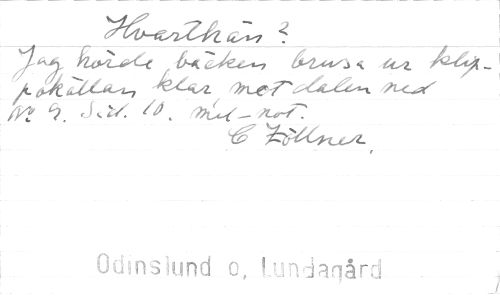 Hvarthän?
Jag hörde bäcken brusa ur klip-
pokällan klar mot dalen ned
No 9. Sid. 10. mel-not.
C Zöllner.
Odinslund o, Lundagård